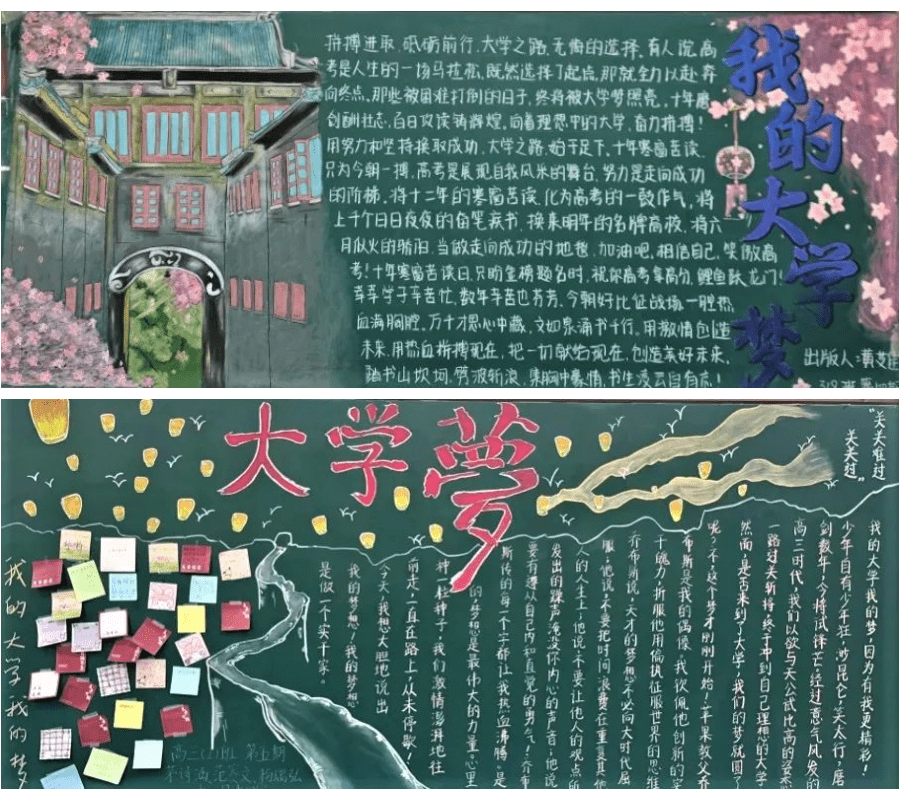 我的大学梦
拼搏进取，砥砺前行，大学之路，无悔的选择，有人说，高
考是人生的一场马拉松，既然选择了起点，那就全力以赴奔
向终点，那些被困难打倒的日子，终将被大学梦照亮，十年磨
剑酬壮志，百日攻读铸辉煌，向着理想中的大学，奋力拼搏！
用努力和坚持换取成功，大学之路，始于足下，十年寒窗苦读，
只为今朝一搏，高考是展现自我风采的舞台，努力是走向成功
的阶梯，将十二年的寒窗苦读，化为高考的一鼓作气，将
上千个日日夜夜的奋笔疾书，换来明年的名牌高校，将六
月似火的骄阳，当做走向成功的地毯，加油吧，相信自己，笑傲高
考！十年寒窗苦读日，只盼金榜题名时，祝你高考拿高分，鲤鱼跃龙门！
莘莘学子辛苦忙，数年辛苦也芬芳，今朝好比征战场，一腔热
血满胸膛，万千才思心中藏，文如泉涌书千行，用激情创造
未来，用热血拼搏现在，把一切献给现在，创造美好未来，
踏书山坎坷，劈波斩浪，集胸中豪情，书生凌云自有志！
出版人：黄
大学夢
“关关难过
关关过”
我的大学我的梦，因为有我更精彩！
少年自有少年狂，涉昆仑，笑太行，磨
剑数年，今将试锋芒，经过意气风发的
高三时代，我们以欲与天公试比高的姿态
一路过关斩将，终于冲到自己理想的大学
然而，是否来到了大学，我们的梦就圆了
呢？不，这个梦才刚刚开始！苹果教父乔
布斯是我的偶像，我钦佩他创新的
十魄力，折服他用偏执征服世界的思维
乔布斯说，天才的梦想不必向大时代屈
服，他说，不要把时间浪费在重复其他
人的人生上，他说，不要让他人的观点所
发出的噪声淹没你内心的声音，他说
要有遵从自己内和直觉的勇气！乔布
斯传的每一个字都让我热血沸腾，是
的，梦想是最伟大的力量，心里
种一粒种子，我们激情澎湃地往
前走，一直在路上，从未停歇！
今天，我想大胆地说出
我的梦想！我的梦想
是做一个实干家。
我的大学，我的梦
高三(二)班 第五期